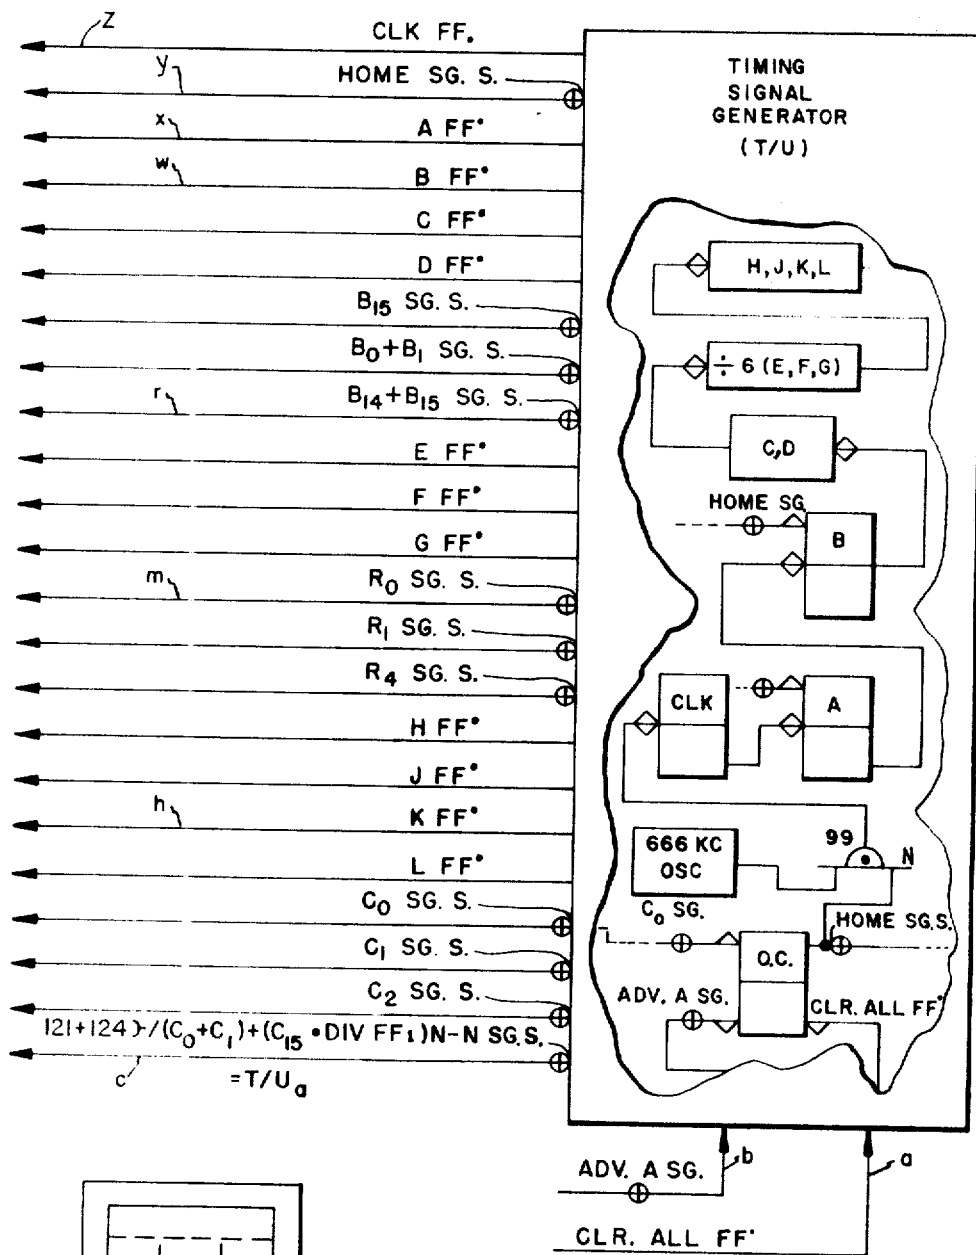 Z
CLK FF.
y
HOME SG. S.
x
A FF'
w
B FF'
C FF'
D FF'
B15 SG. S.
B0+B1 SG. S.
r
B14+B15 SG. S.
E FF'
F FF'
G FF'
m
R0 SG. S.
R1 SG. S.
R4 SG. S.
H FF'
J FF'
h
K FF'
L FF'
C0 SG. S.
C1 SG. S.
C2 SG. S.
121+124)-/(C0+C1)+(C15•DIV FF1)N-N SG.S.
c
=T/Ua
TIMING
SIGNAL
GENERATOR
(T/U)
H,J,K,L
÷ 6 (E,F,G)
C,D
HOME SG.
B
CLK
A
666 KC
OSC
99
N
C0 SG.
HOME SG.S.
O.C.
ADV. A SG.
CLR. ALL FF'
ADV. A SG.
b
a
CLR. ALL FF'